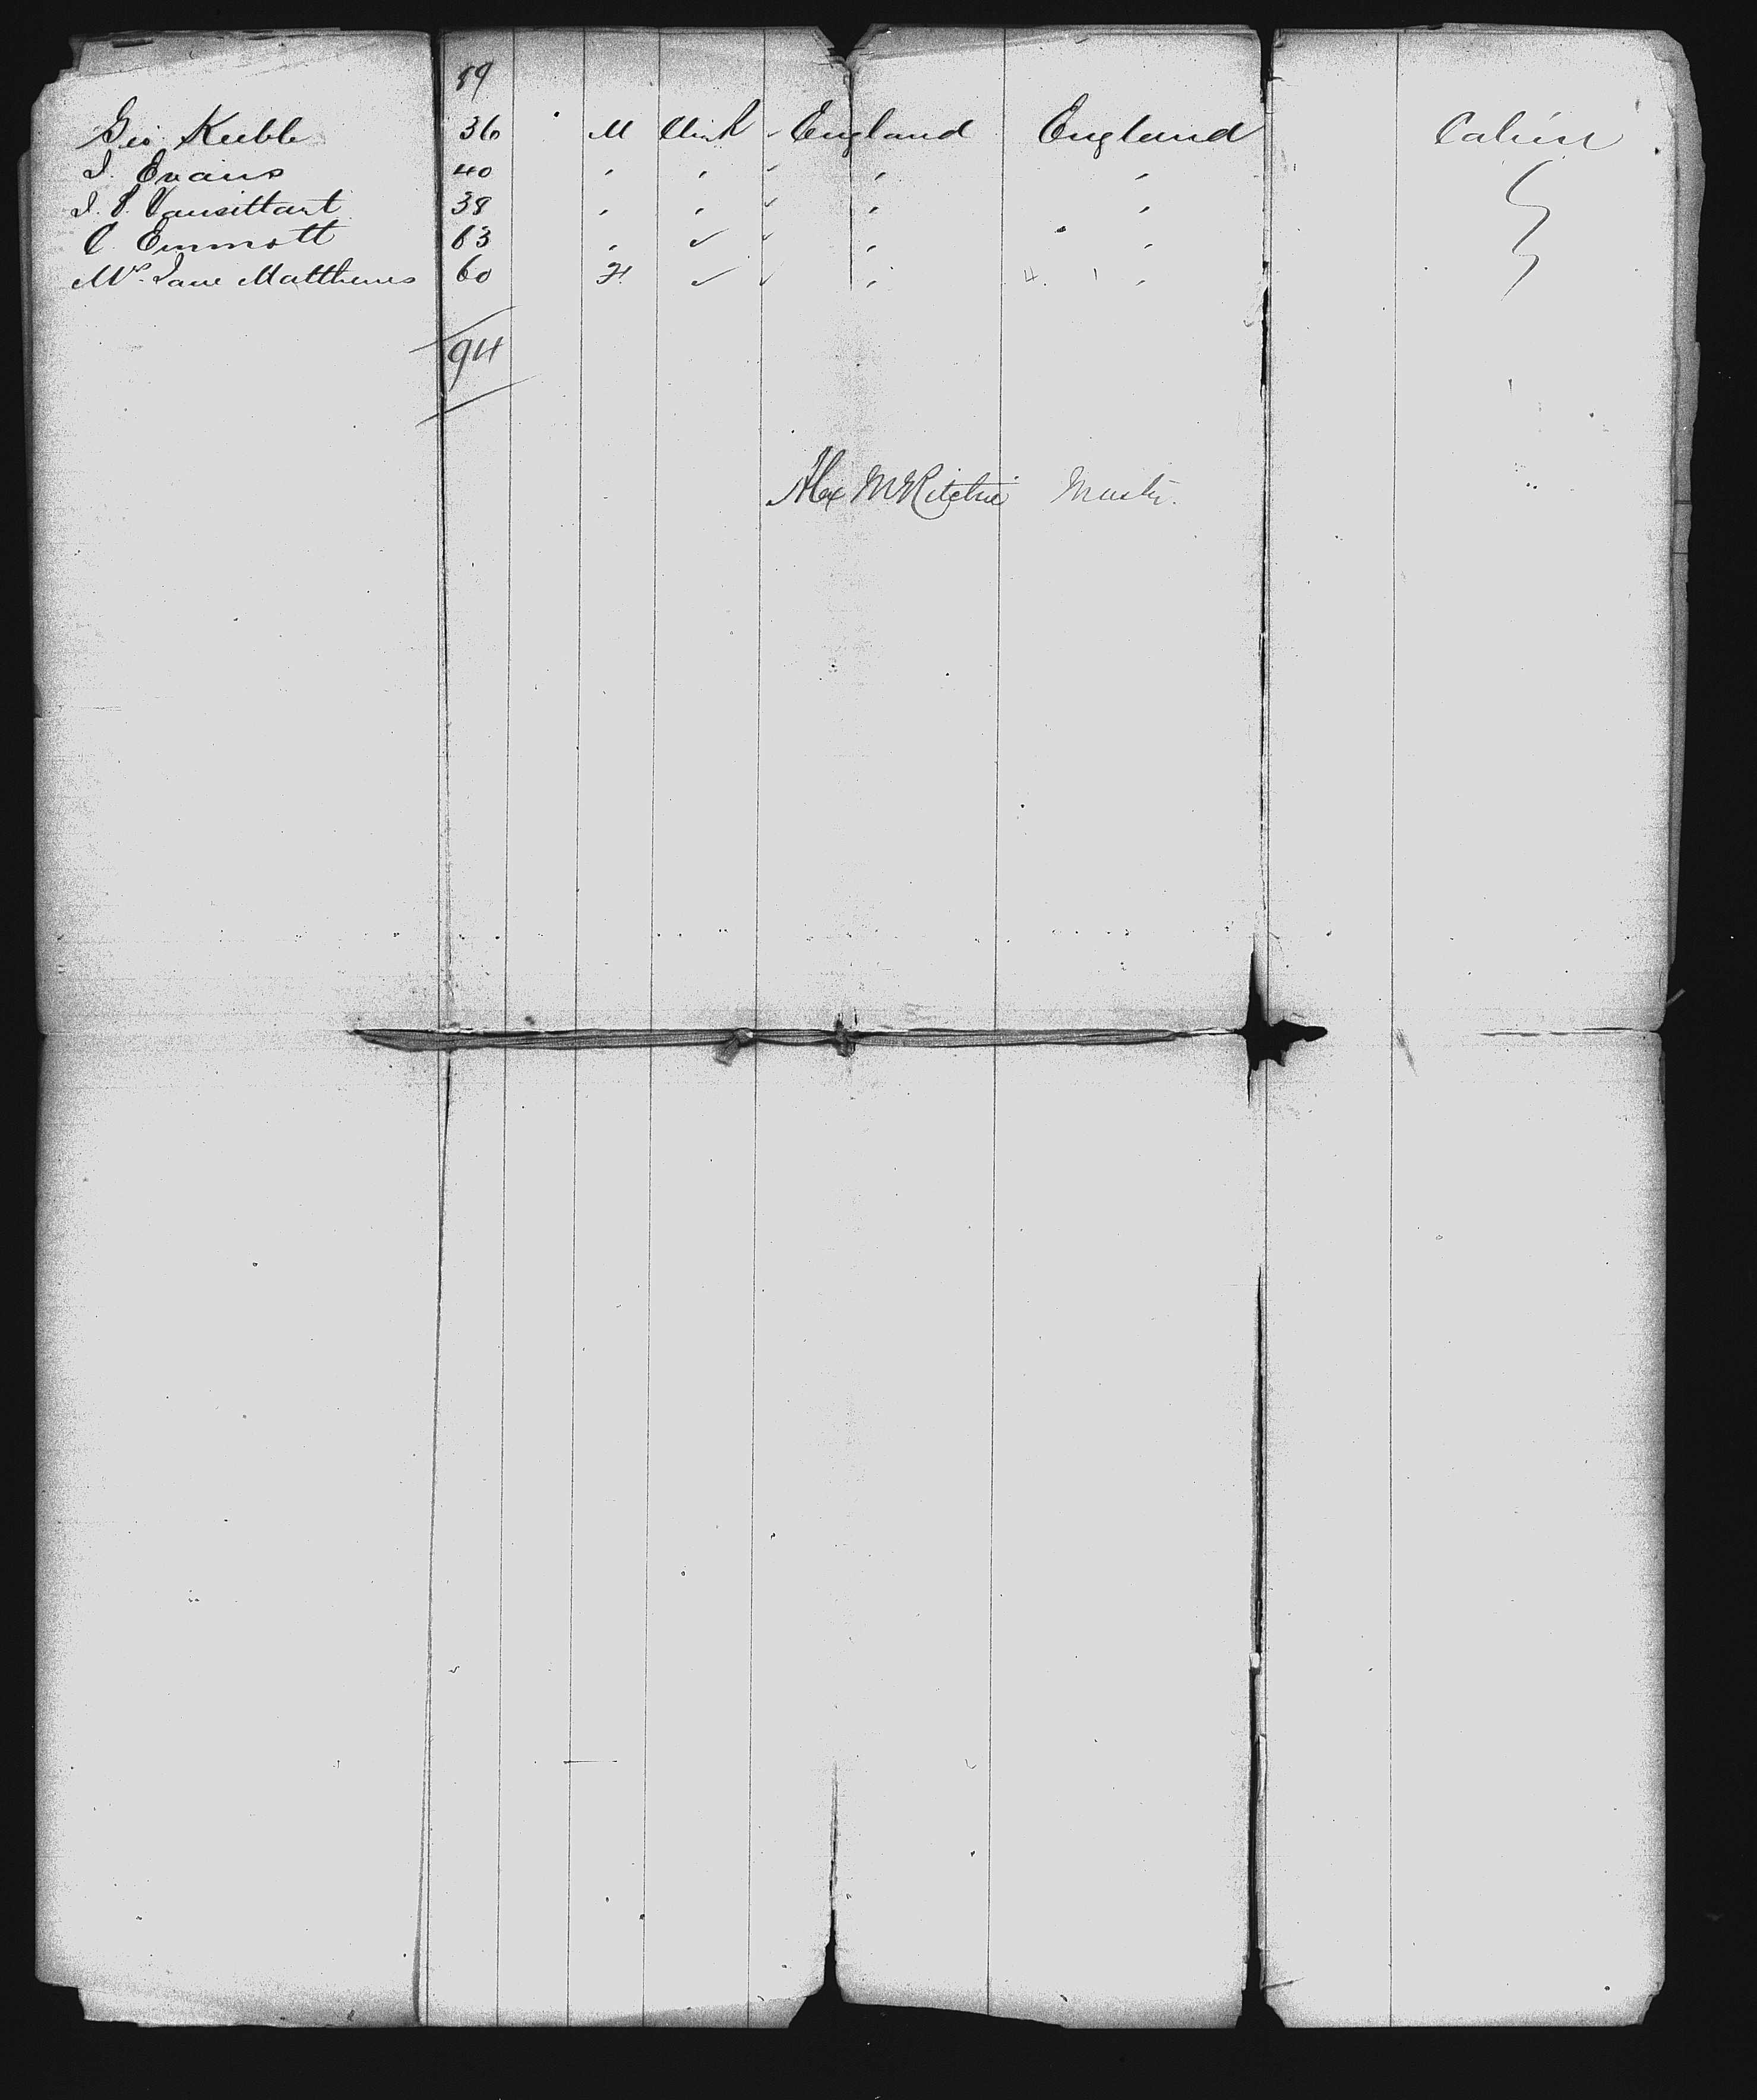 89
Geo Keeble 36 M Clerk England England Cabin
J. Evans 40 " " " " "
J. P. Vansittart 38 " " " " "
C. Emmott 63 " " " " "
Mrs. Jane Matthews 60 F. " " " "
94
Alex McRitchie Master.